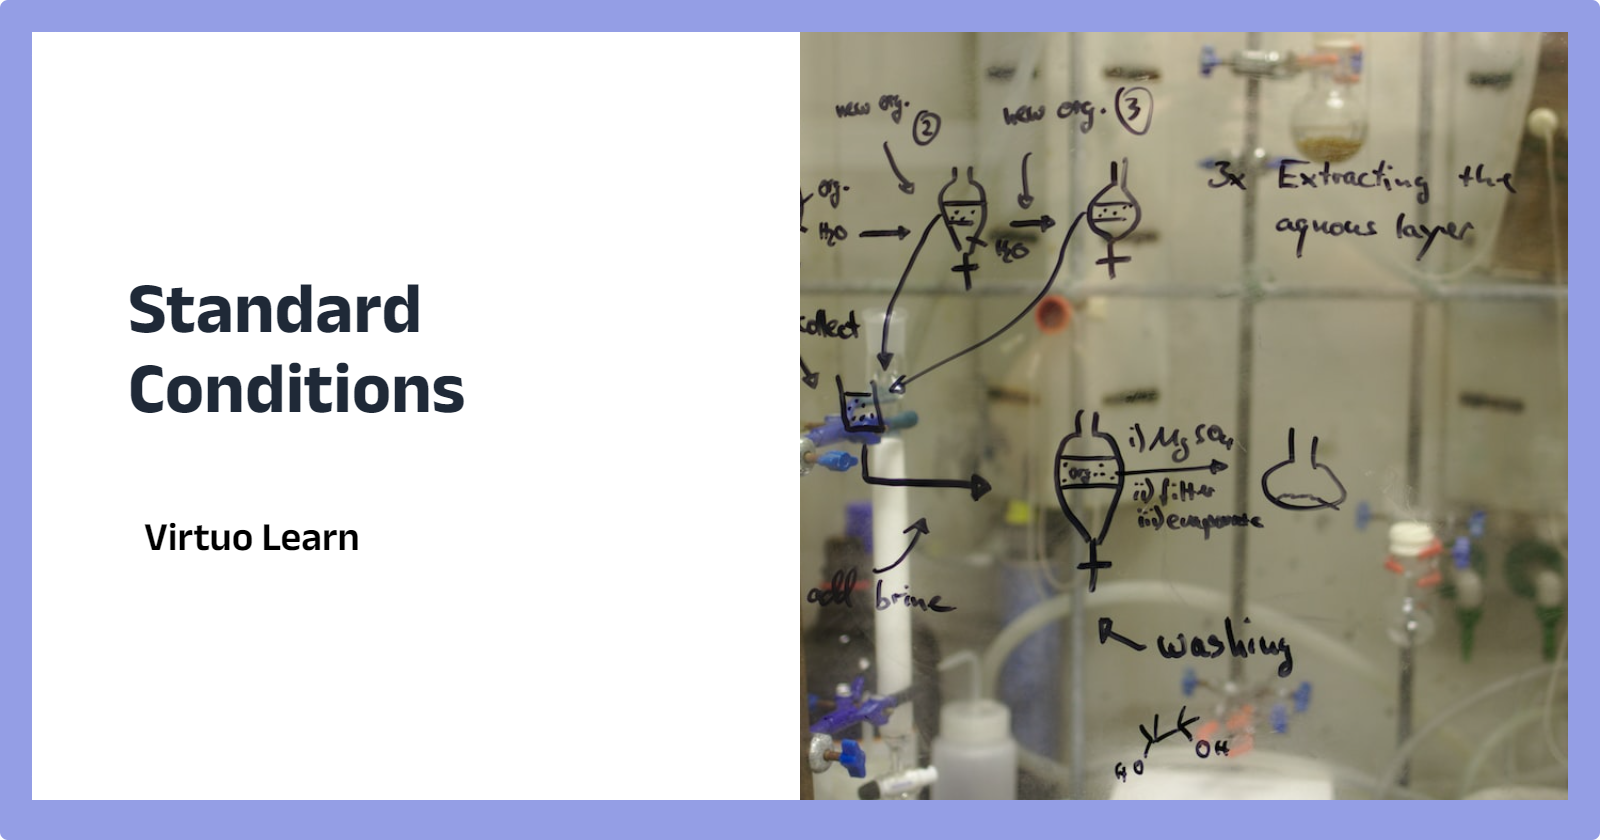 Standard
Conditions
Virtuo Learn
new org. 2
new org. 3
org.
H₂O
H₂O
3x Extracting the
aquous layer
collect
org
i) MgSO₄
ii) filter
iii) evaporate
add brine
washing
HO
OH